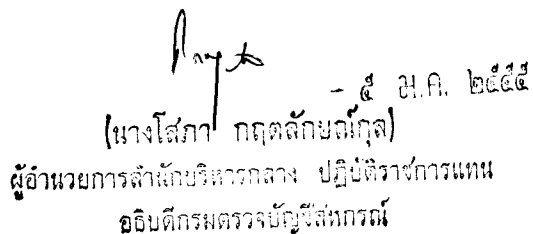 - ๕ ม.ค. ๒๕๕๕
(นางโสภา กฤตลักษณ์กุล)
ผู้อำนวยการสำนักบริหารกลาง ปฏิบัติราชการแทน
อธิบดีกรมตรวจบัญชีสหกรณ์